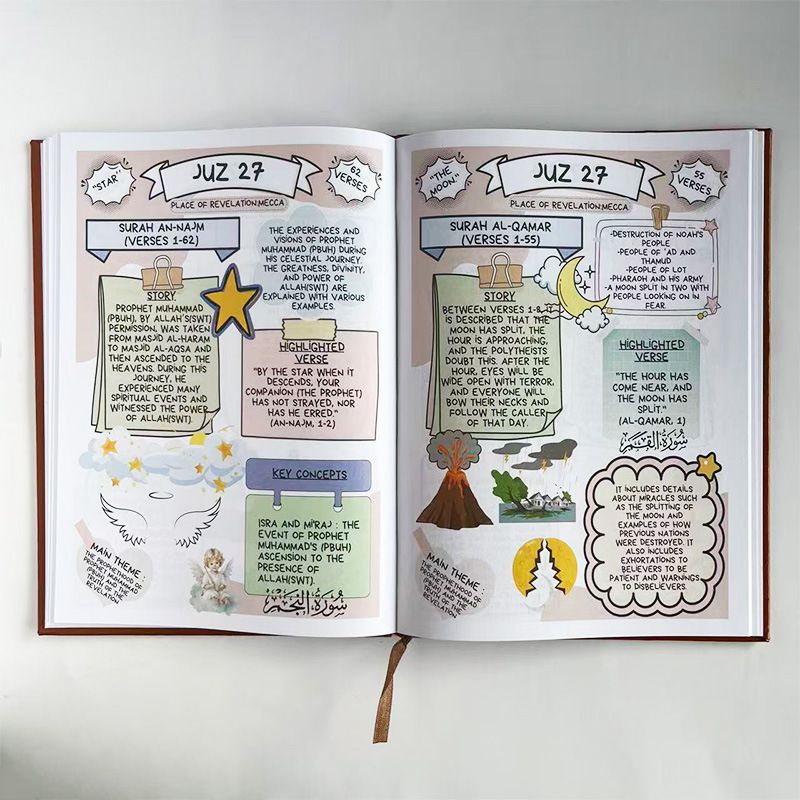 "STAR"
JUZ 27
62
VERSES
PLACE OF REVELATION:MECCA
SURAH AN-NAJM
(VERSES 1-62)
STORY
PROPHET MUHAMMAD
(PBUH), BY ALLAH'S(SWT)
PERMISSION, WAS TAKEN
FROM MASJID AL-HARAM
TO MASJID AL-AQSA AND
THEN ASCENDED TO THE
HEAVENS. DURING THIS
JOURNEY, HE
EXPERIENCED MANY
SPIRITUAL EVENTS AND
WITNESSED THE POWER
OF ALLAH(SWT).
THE EXPERIENCES AND
VISIONS OF PROPHET
MUHAMMAD (PBUH) DURING
HIS CELESTIAL JOURNEY.
THE GREATNESS, DIVINITY,
AND POWER OF
ALLAH(SWT) ARE
EXPLAINED WITH VARIOUS
EXAMPLES.
HIGHLIGHTED
VERSE
"BY THE STAR WHEN IT
DESCENDS, YOUR
COMPANION (THE PROPHET)
HAS NOT STRAYED, NOR
HAS HE ERRED."
(AN-NAJM, 1-2)
KEY CONCEPTS
ISRA AND MI'RAJ : THE
EVENT OF PROPHET
MUHAMMAD'S (PBUH)
ASCENSION TO THE
PRESENCE OF
ALLAH(SWT).
سُورَةُ النَّجْمِ
MAIN THEME :
THE PROPHETHOOD OF
PROPHET MUHAMMAD
(PBUH) AND THE
TRUTH OF THE
REVELATION
"THE
MOON."
JUZ 27
55
VERSES
PLACE OF REVELATION:MECCA
SURAH AL-QAMAR
(VERSES 1-55)
STORY
BETWEEN VERSES 1-8, IT
IS DESCRIBED THAT THE
MOON HAS SPLIT, THE
HOUR IS APPROACHING,
AND THE POLYTHEISTS
DOUBT THIS. AFTER THE
HOUR, EYES WILL BE
WIDE OPEN WITH TERROR,
AND EVERYONE WILL
BOW THEIR NECKS AND
FOLLOW THE CALLER
OF THAT DAY.
-DESTRUCTION OF NOAH'S
PEOPLE
-PEOPLE OF 'AD AND
THAMUD
-PEOPLE OF LOT
-PHARAOH AND HIS ARMY
-A MOON SPLIT IN TWO WITH
PEOPLE LOOKING ON IN
FEAR.
HIGHLIGHTED
VERSE
"THE HOUR HAS
COME NEAR, AND
THE MOON HAS
SPLIT."
(AL-QAMAR, 1)
سُورَةُ القَمَرِ
IT INCLUDES DETAILS
ABOUT MIRACLES SUCH
AS THE SPLITTING OF
THE MOON AND
EXAMPLES OF HOW
PREVIOUS NATIONS
WERE DESTROYED. IT
ALSO INCLUDES
EXHORTATIONS TO
BELIEVERS TO BE
PATIENT AND WARNINGS
TO DISBELIEVERS.
MAIN THEME :
THE PROPHETHOOD OF
PROPHET MUHAMMAD
(PBUH) AND THE
TRUTH OF THE
REVELATION